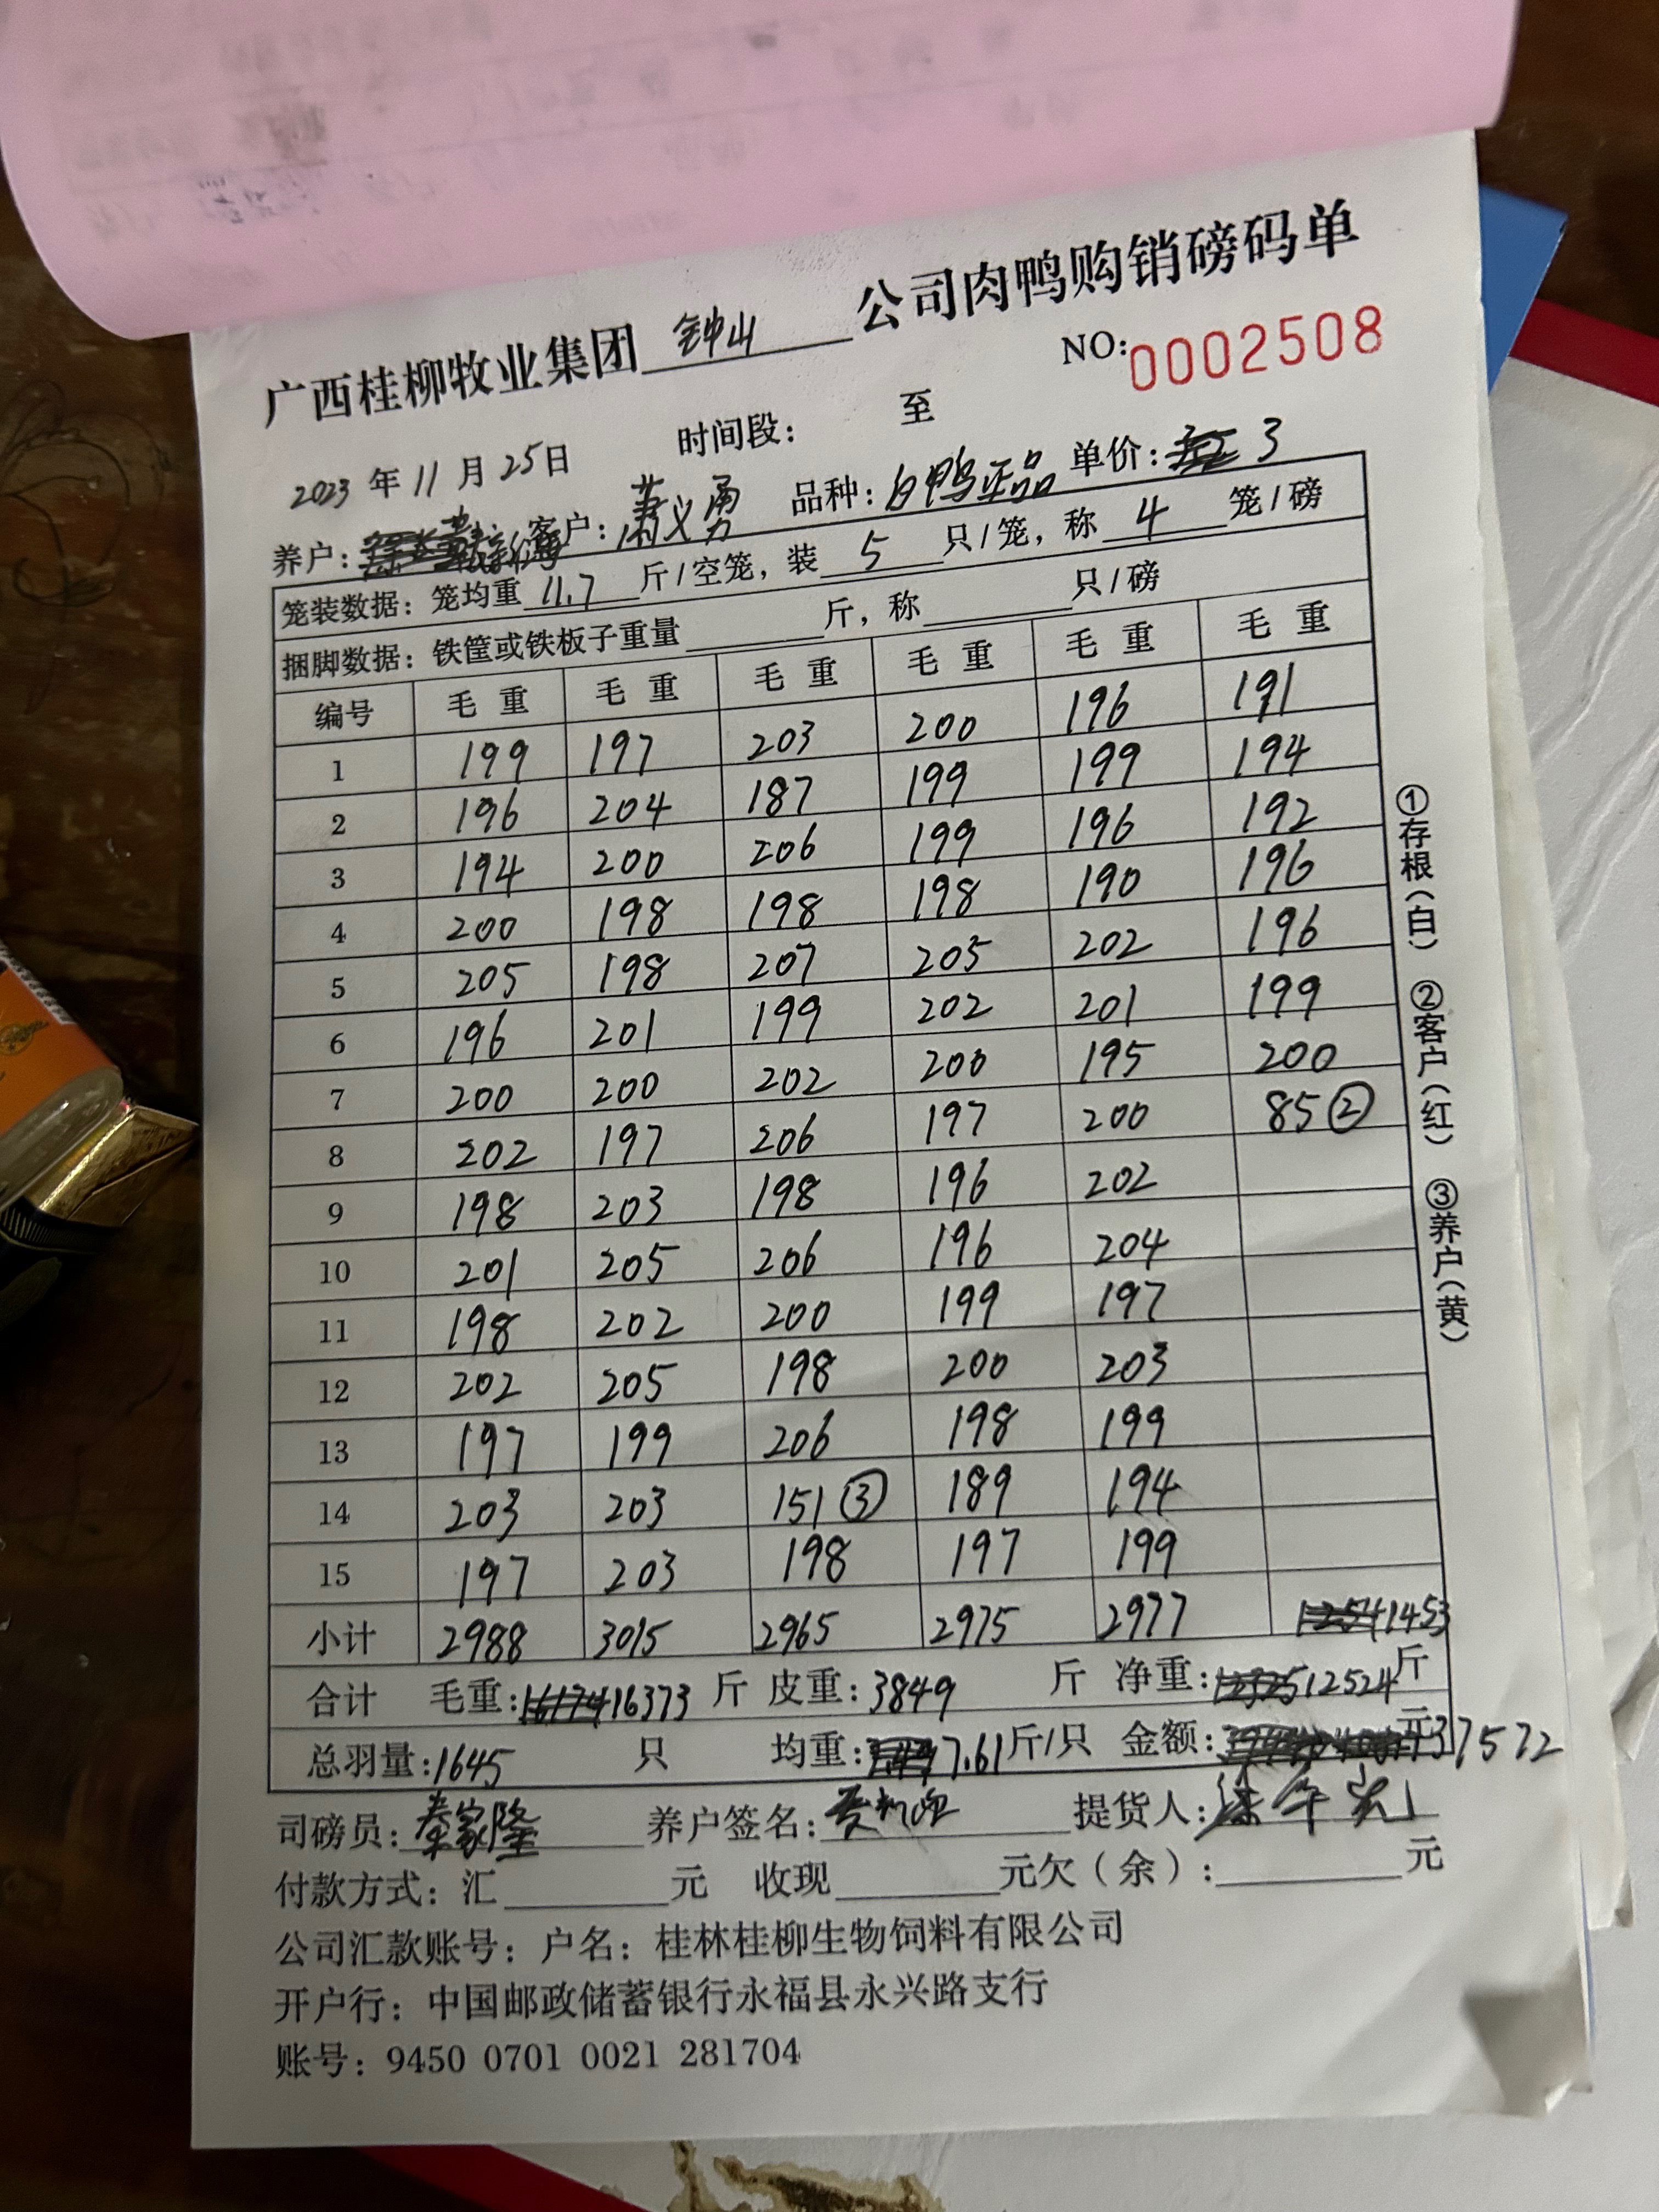 广西桂柳牧业集团 钟山 公司肉鸭购销磅码单
NO:0002508
2023 年 11 月 25日 时间段: 至
养户: 客户: 萧义勇 品种: 白鸭正品 单价: 3
笼装数据: 笼均重 11.7 斤/空笼, 装 5 只/笼, 称 4 笼/磅
捆脚数据: 铁筐或铁板子重量 斤, 称 只/磅
编号 毛重 毛重 毛重 毛重 毛重 毛重
1 199 197 203 200 196 191
2 196 204 187 199 199 194
3 194 200 206 199 196 192
4 200 198 198 198 190 196
5 205 198 207 205 202 196
6 196 201 199 202 201 199
7 200 200 202 200 195 200
8 202 197 206 197 200 85②
9 198 203 198 196 202
10 201 205 206 196 204
11 198 202 200 199 197
12 202 205 198 200 203
13 197 199 206 198 199
14 203 203 151③ 189 194
15 197 203 198 197 199
小计 2988 3015 2965 2975 2977 1453
合计 毛重: 16373 斤 皮重: 3849 斤 净重: 12524 斤
总羽量: 1645 只 均重: 7.61 斤/只 金额: 元 37572
司磅员: 秦家隆 养户签名: 提货人:
付款方式: 汇 元 收现 元欠(余): 元
公司汇款账号: 户名: 桂林桂柳生物饲料有限公司
开户行: 中国邮政储蓄银行永福县永兴路支行
账号: 9450 0701 0021 281704
①存根(白) ②客户(红) ③养户(黄)